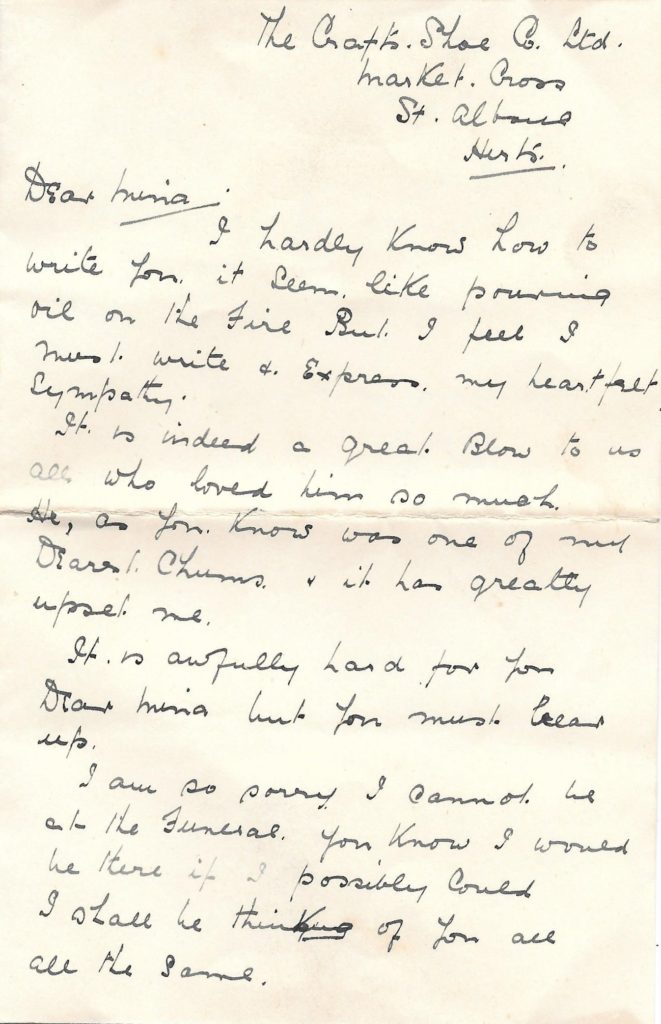 The Crafts. Shoe Co. Ltd.
Market. Cross
St. Albans
Herts.
Dear Mina.
I hardly Know how to
write you. it seem. like pouring
oil on the Fire But. I feel I
must. write & Express. my heartfelt
Sympathy.
It. is indeed a great. Blow to us
all who loved him so much.
He, as you. Know was one of my
Dearest. Chums. & it has greatly
upset me.
It. is awfully hard for you
Dear Mina but you must bear
up.
I am so sorry I cannot. be
at the Funeral. you Know I would
be there if I possibly Could
I shall be thinking of you all
all the same.